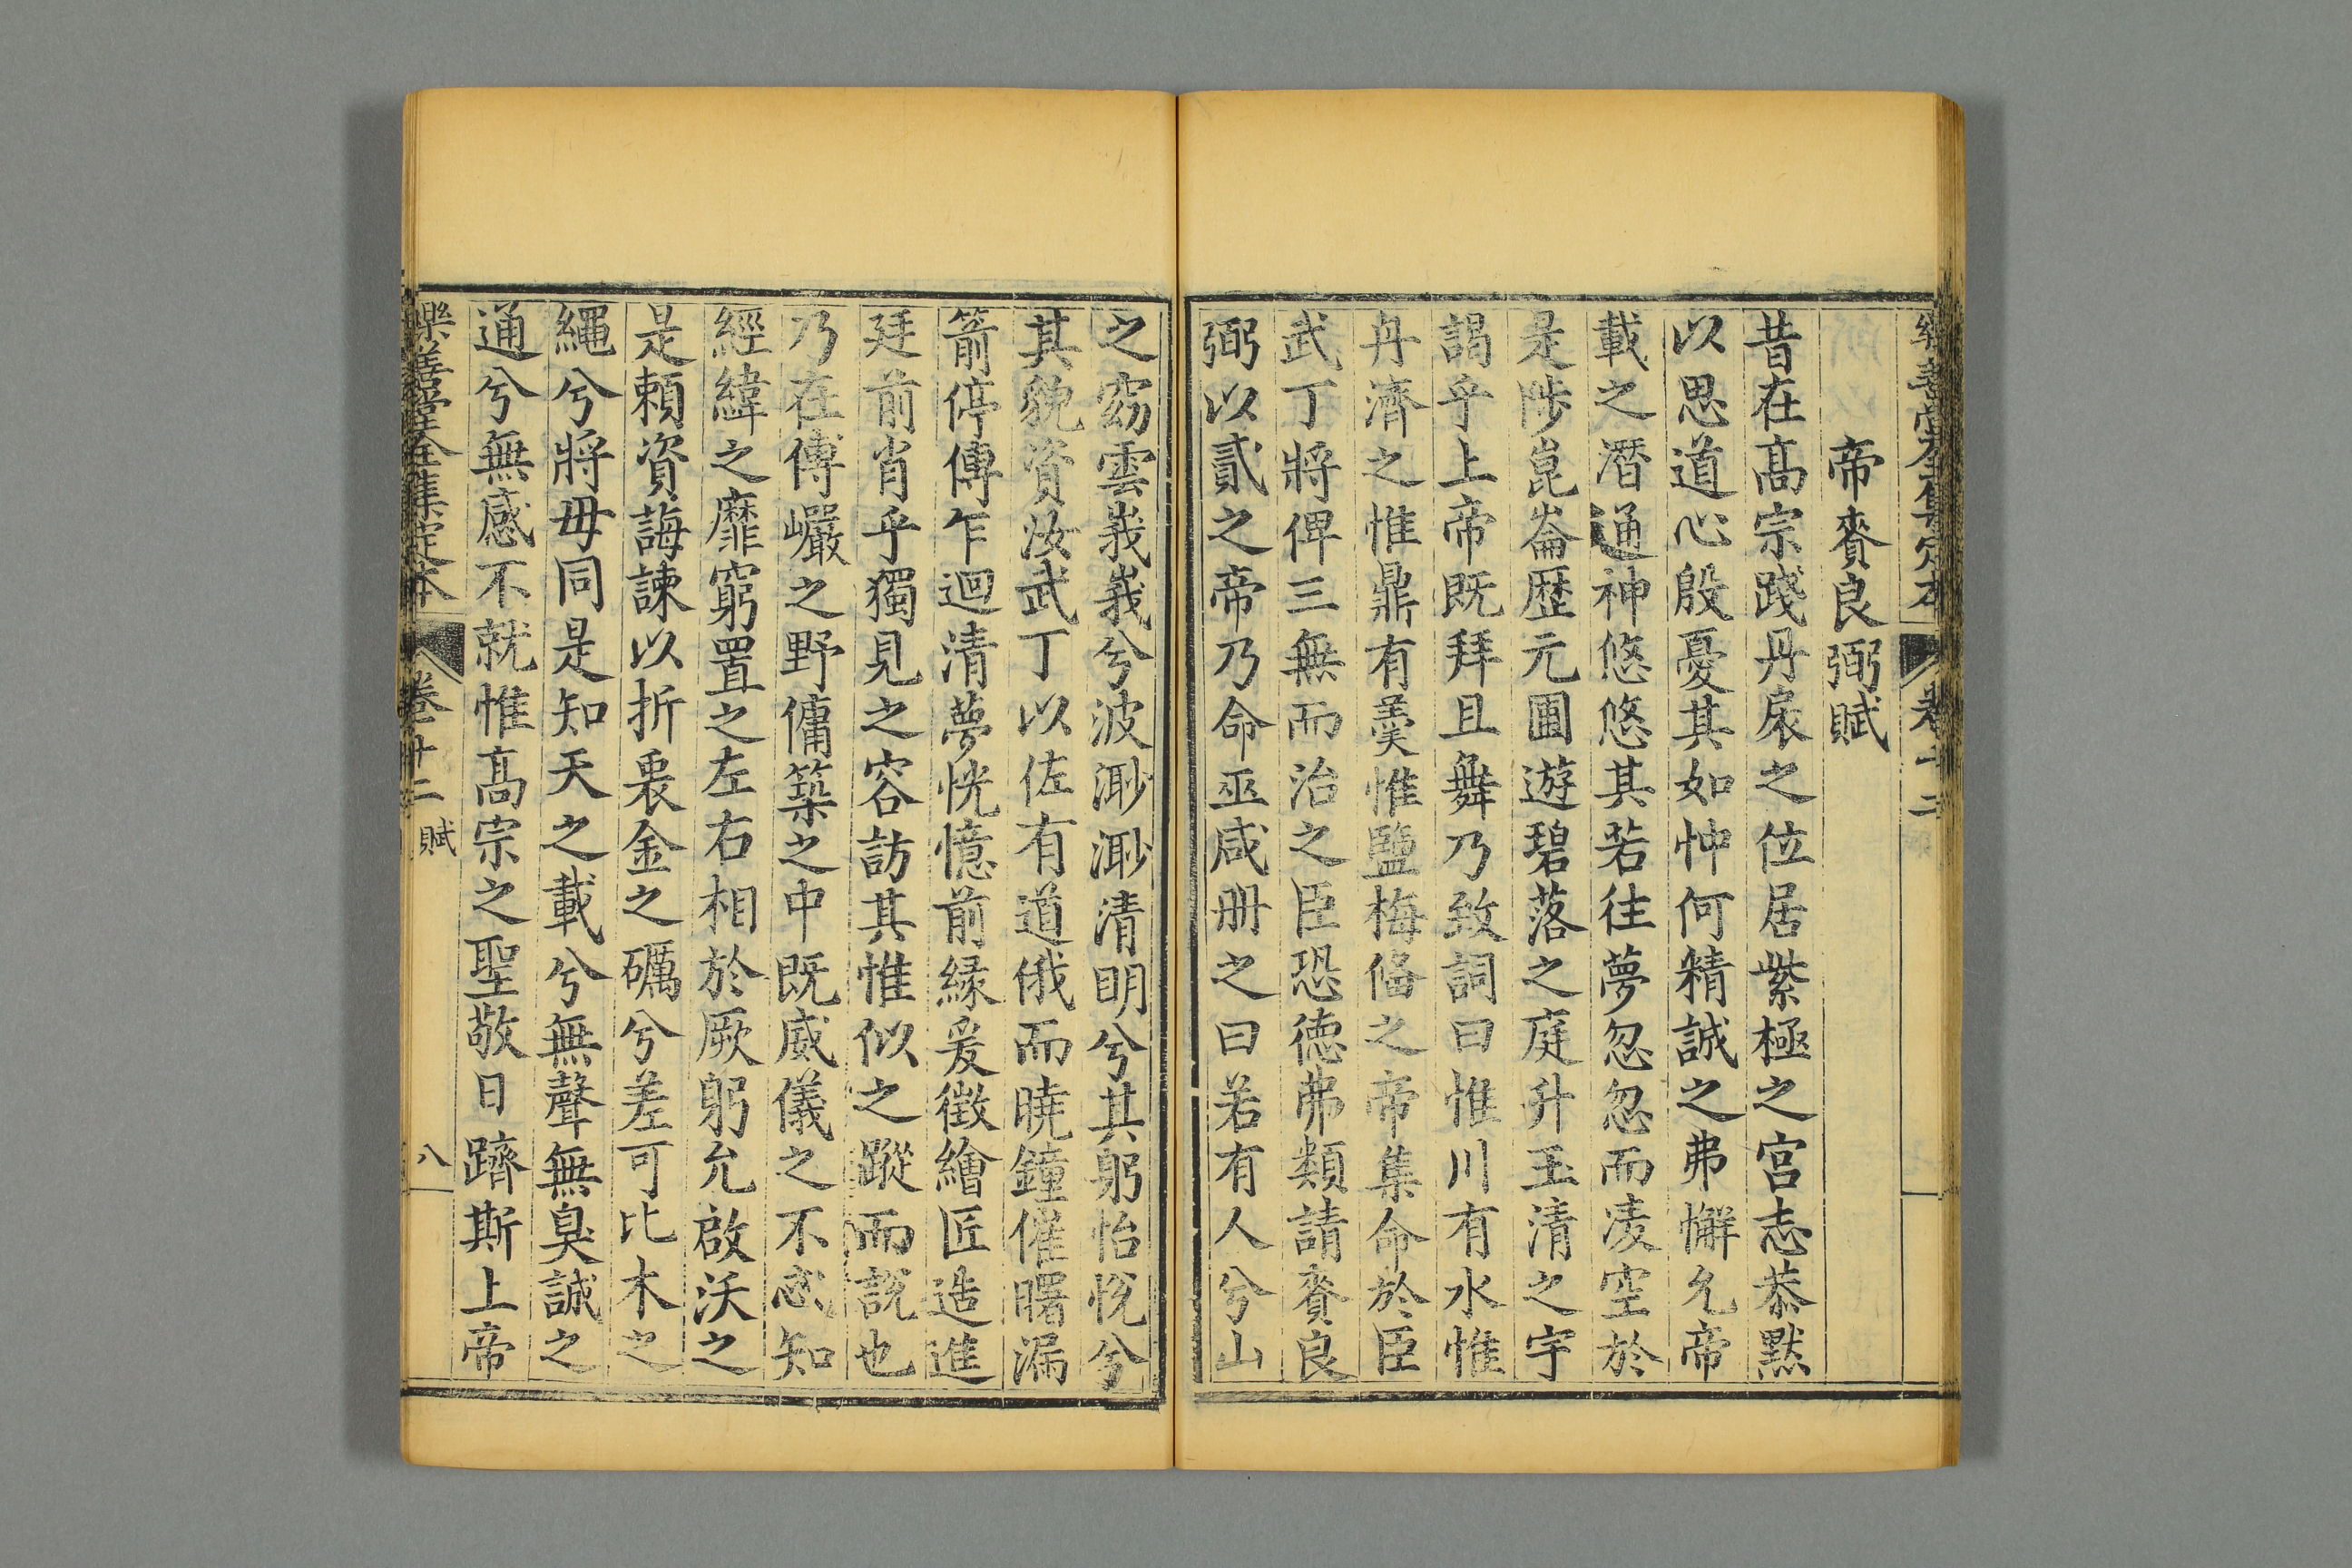 樂善堂全集定本 卷十二
帝賚良弼賦
昔在髙宗踐丹扆之位居紫極之宫志恭黙
以思道心殷憂其如忡何精誠之弗懈允帝
載之潛通神悠悠其若往夢忽忽而凌空於
是陟崑崙歴元圃遊碧落之庭升玉清之宇
謁乎上帝既拜且舞乃致詞曰惟川有水惟
丹濟之惟鼎有羹惟鹽梅俻之帝集命於臣
武丁將俾三無而治之臣恐徳弗類請賚良
弼以貳之帝乃命巫咸册之曰若有人兮山
之窈雲峩峩兮波渺渺清明兮其躬怡悅兮
其貌資汝武丁以佐有道俄而曉鐘催曙漏
箭停傳乍迴清夢恍憶前縁爰徵繪匠造進
廷前肖乎獨見之容訪其惟似之蹤而說也
乃在傅巖之野傭築之中既威儀之不忒知
經緯之靡窮置之左右相於厥躬允啟沃之
是頼資誨諫以折衷金之礪兮差可比木之
繩兮將毋同是知天之載兮無聲無臭誠之
通兮無感不就惟髙宗之聖敬日躋斯上帝
樂善堂全集定本 卷十二 賦 八